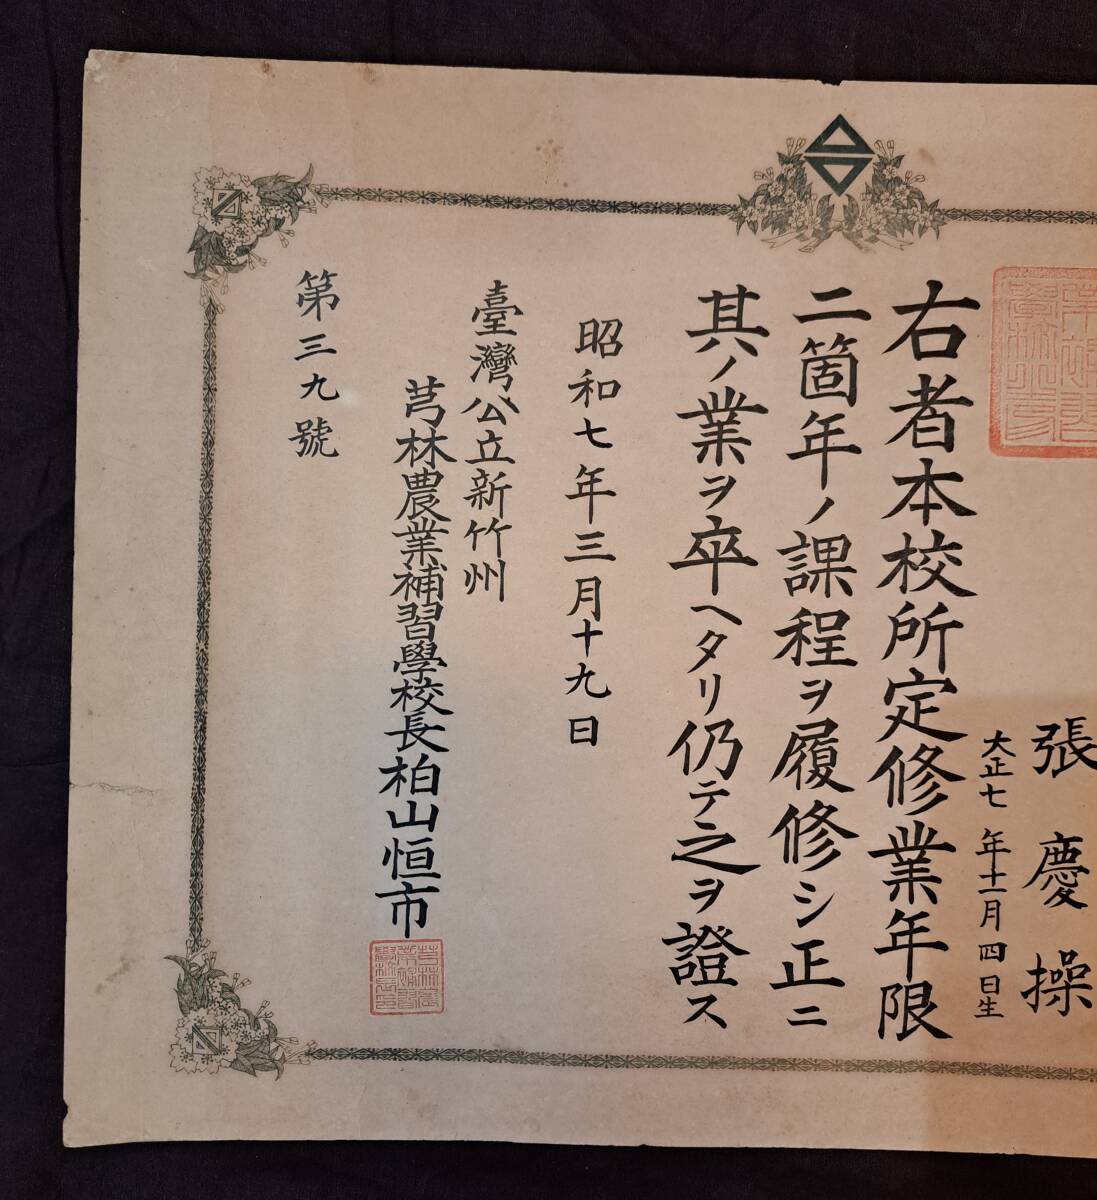 張慶操
大正七年十一月四日生
右者本校所定修業年限
二箇年ノ課程ヲ履修シ正ニ
其ノ業ヲ卒ヘタリ仍テ之ヲ證ス
昭和七年三月十九日
臺灣公立新竹州
芎林農業補習學校長柏山恒市
第三九號